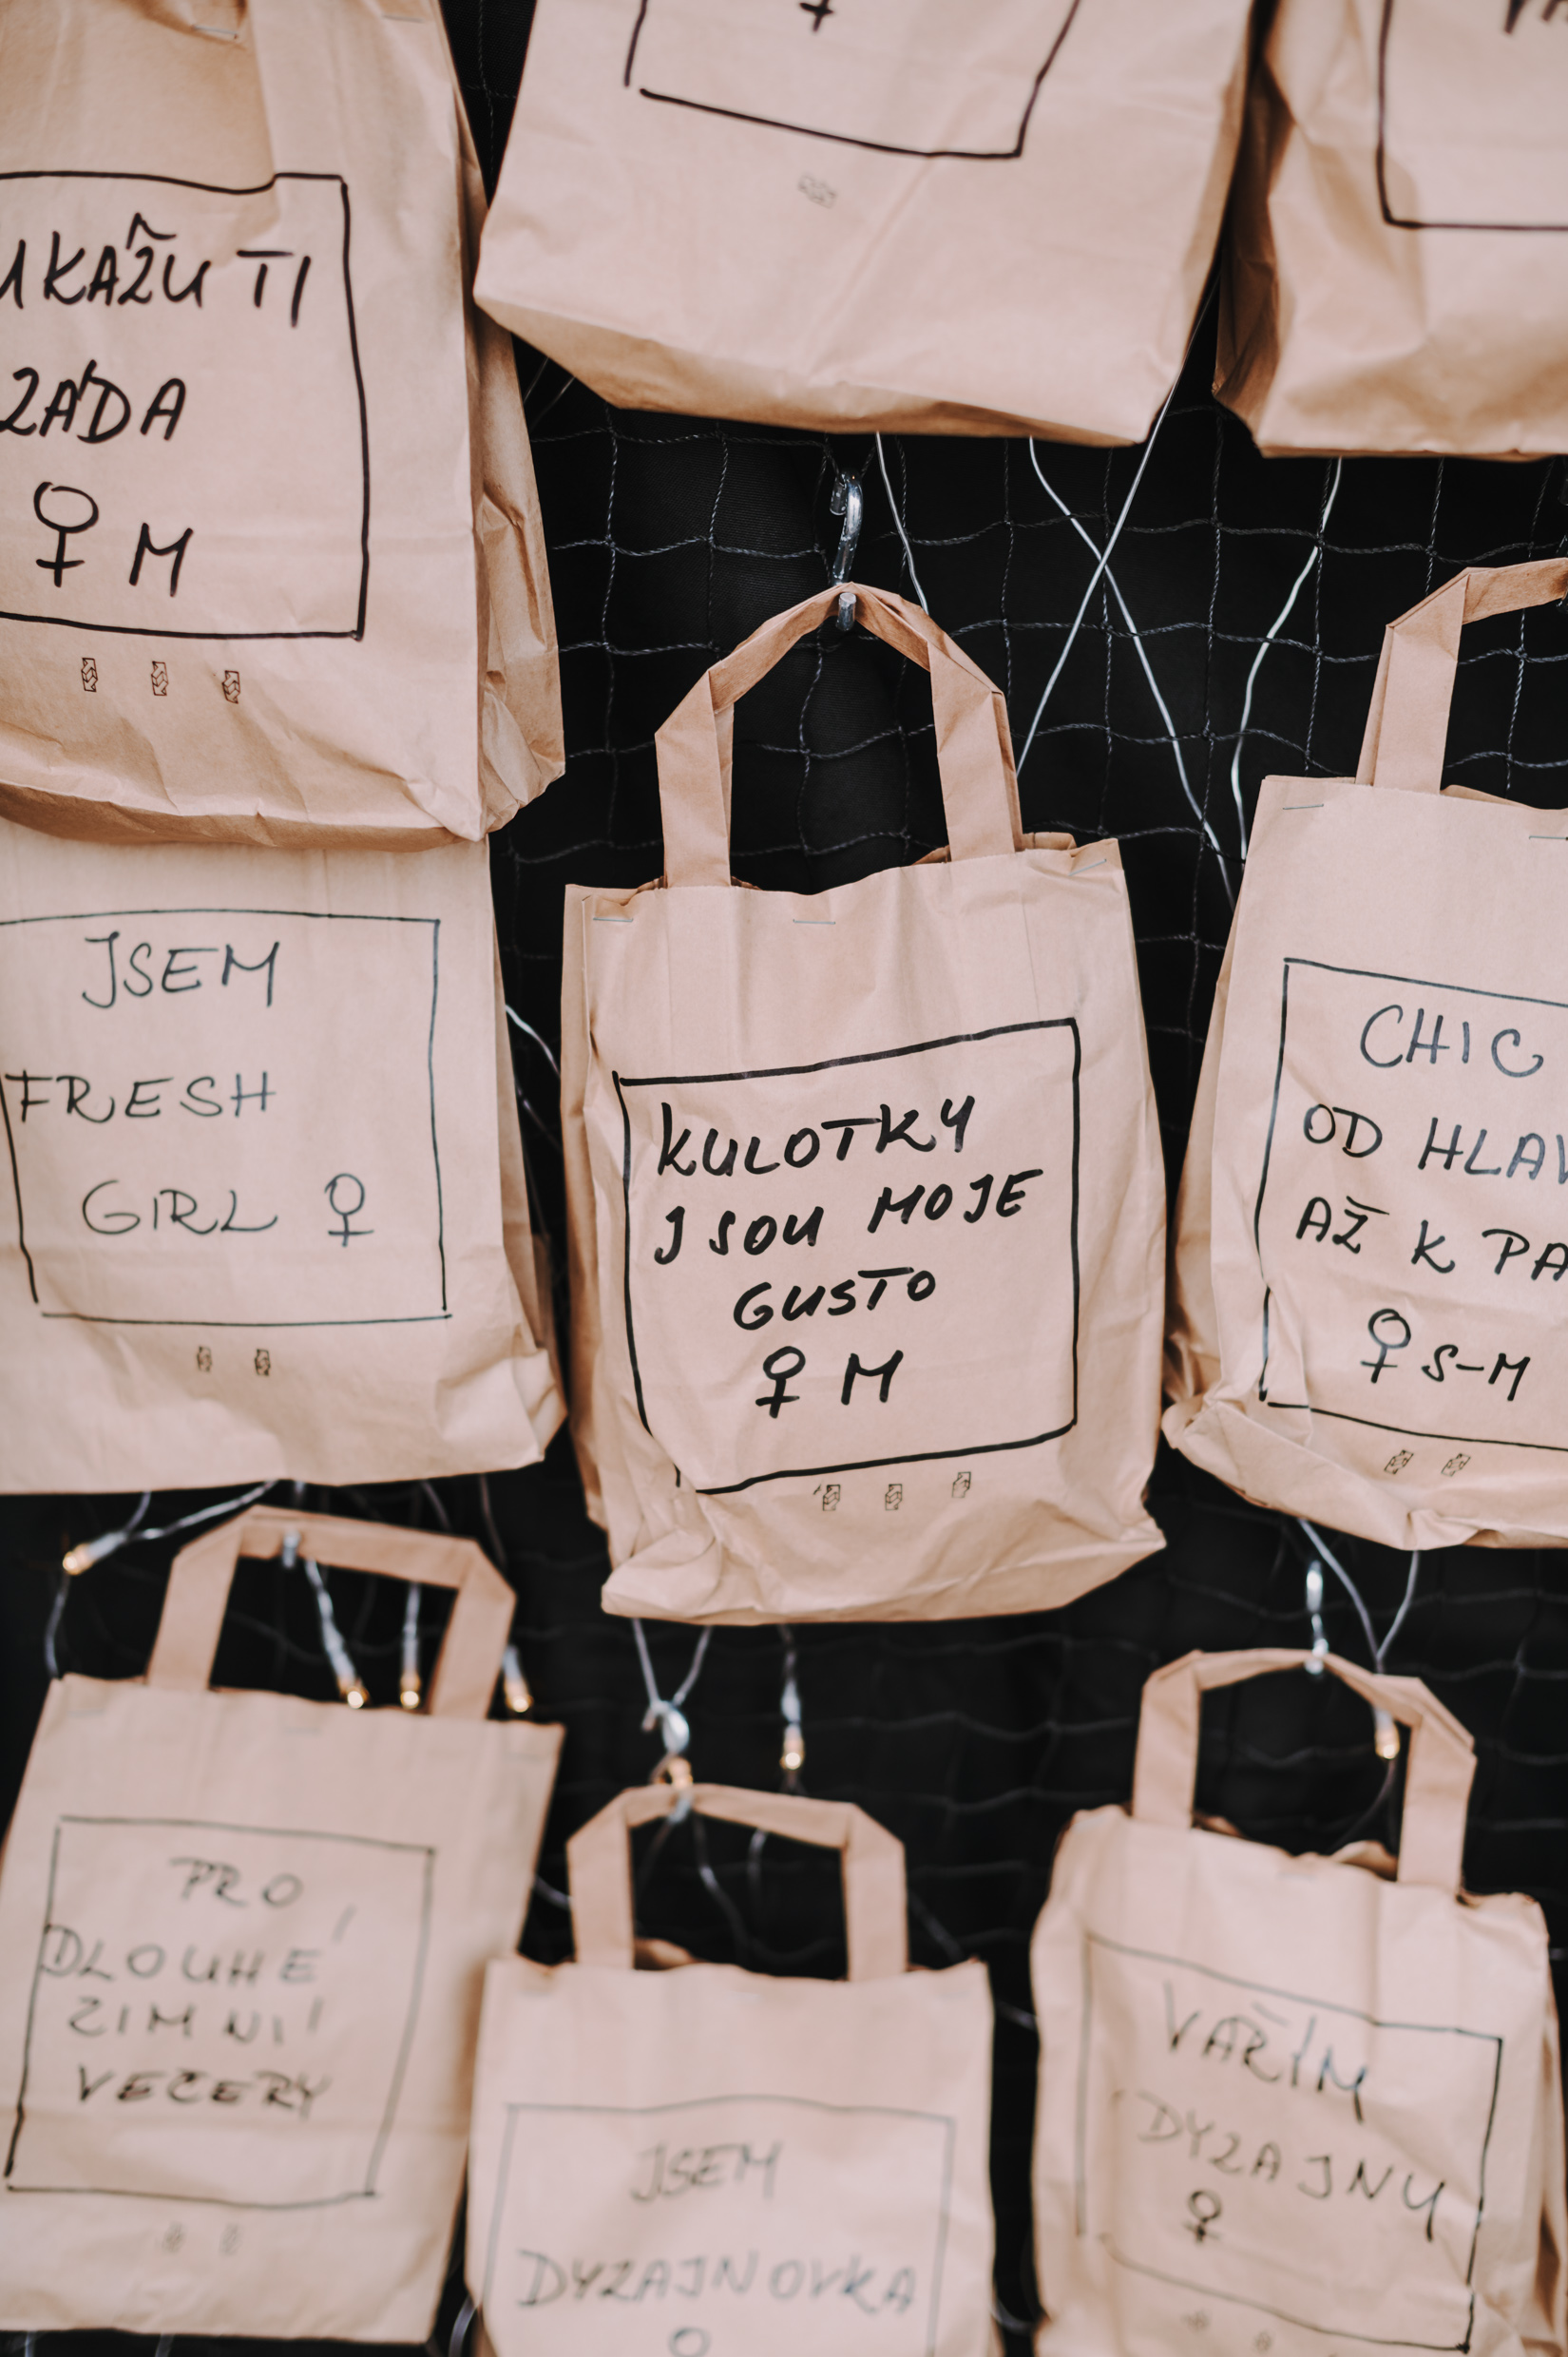 UKAŽU TI
ZÁDA
♀ M
JSEM
FRESH
GIRL ♀
KULOTKY
JSOU MOJE
GUSTO
♀ M
CHIC
OD HLAV
AŽ K PA
♀ S-M
PRO
DLOUHÉ
ZIMNÍ
VEČERY
JSEM
DYZAJNOVKA
VAŘÍM
DYZAJNY
♀